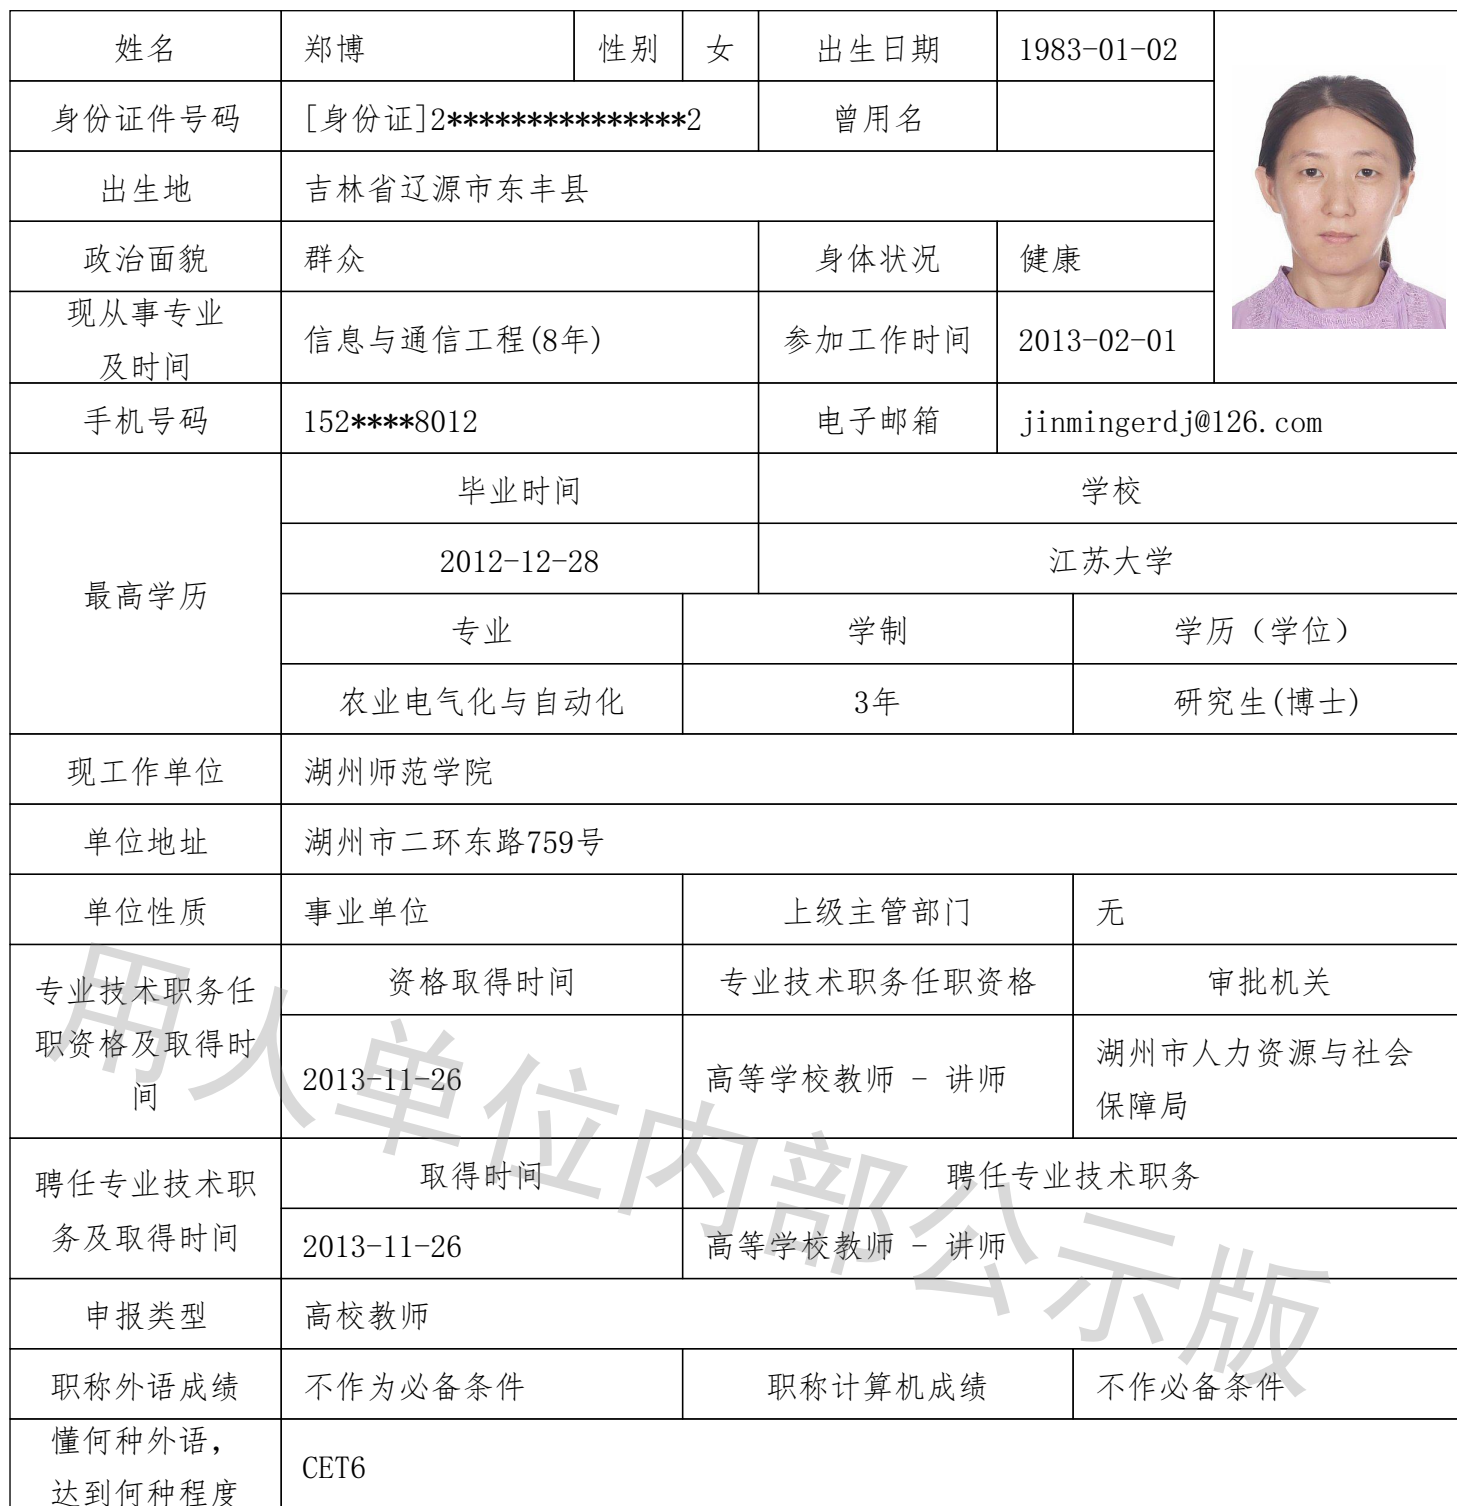 姓名 郑博 性别 女 出生日期 1983-01-02
身份证件号码 [身份证]2***************2 曾用名
出生地 吉林省辽源市东丰县
政治面貌 群众 身体状况 健康
现从事专业
及时间
信息与通信工程(8年) 参加工作时间 2013-02-01
手机号码 152****8012 电子邮箱 jinmingerdj@126.com
最高学历
毕业时间 学校
2012-12-28 江苏大学
专业 学制 学历（学位）
农业电气化与自动化 3年 研究生(博士)
现工作单位 湖州师范学院
单位地址 湖州市二环东路759号
单位性质 事业单位 上级主管部门 无
专业技术职务任
职资格及取得时
间
资格取得时间 专业技术职务任职资格 审批机关
2013-11-26 高等学校教师 - 讲师
湖州市人力资源与社会
保障局
聘任专业技术职
务及取得时间
取得时间 聘任专业技术职务
2013-11-26 高等学校教师 - 讲师
申报类型 高校教师
职称外语成绩 不作为必备条件 职称计算机成绩 不作必备条件
懂何种外语，
达到何种程度
CET6
用人单位内部公示版